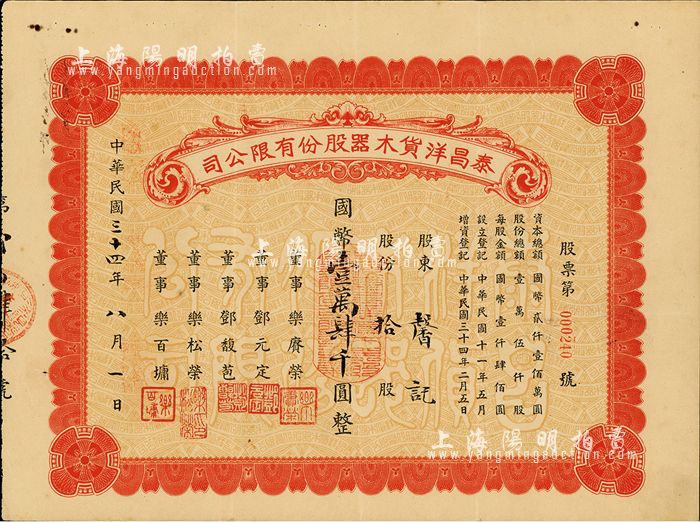 上海陽明拍賣
www.yangmingauction.com
泰昌洋貨木器股份有限公司
股票第 000240 號
資本總額 國幣貳仟壹佰萬圓
股份總額 壹萬伍仟股
每股金額 國幣壹仟肆佰圓
設立登記 中華民國十一年五月
增資登記 中華民國三十四年二月五日
股東 馨記
股份 拾 股
國幣壹萬肆千圓整
董事 樂賡榮
董事 鄧元定
董事 鄧馥苞
董事 樂松榮
董事 樂百墉
中華民國三十四年八月一日
上海陽明拍賣
www.yangmingauction.com